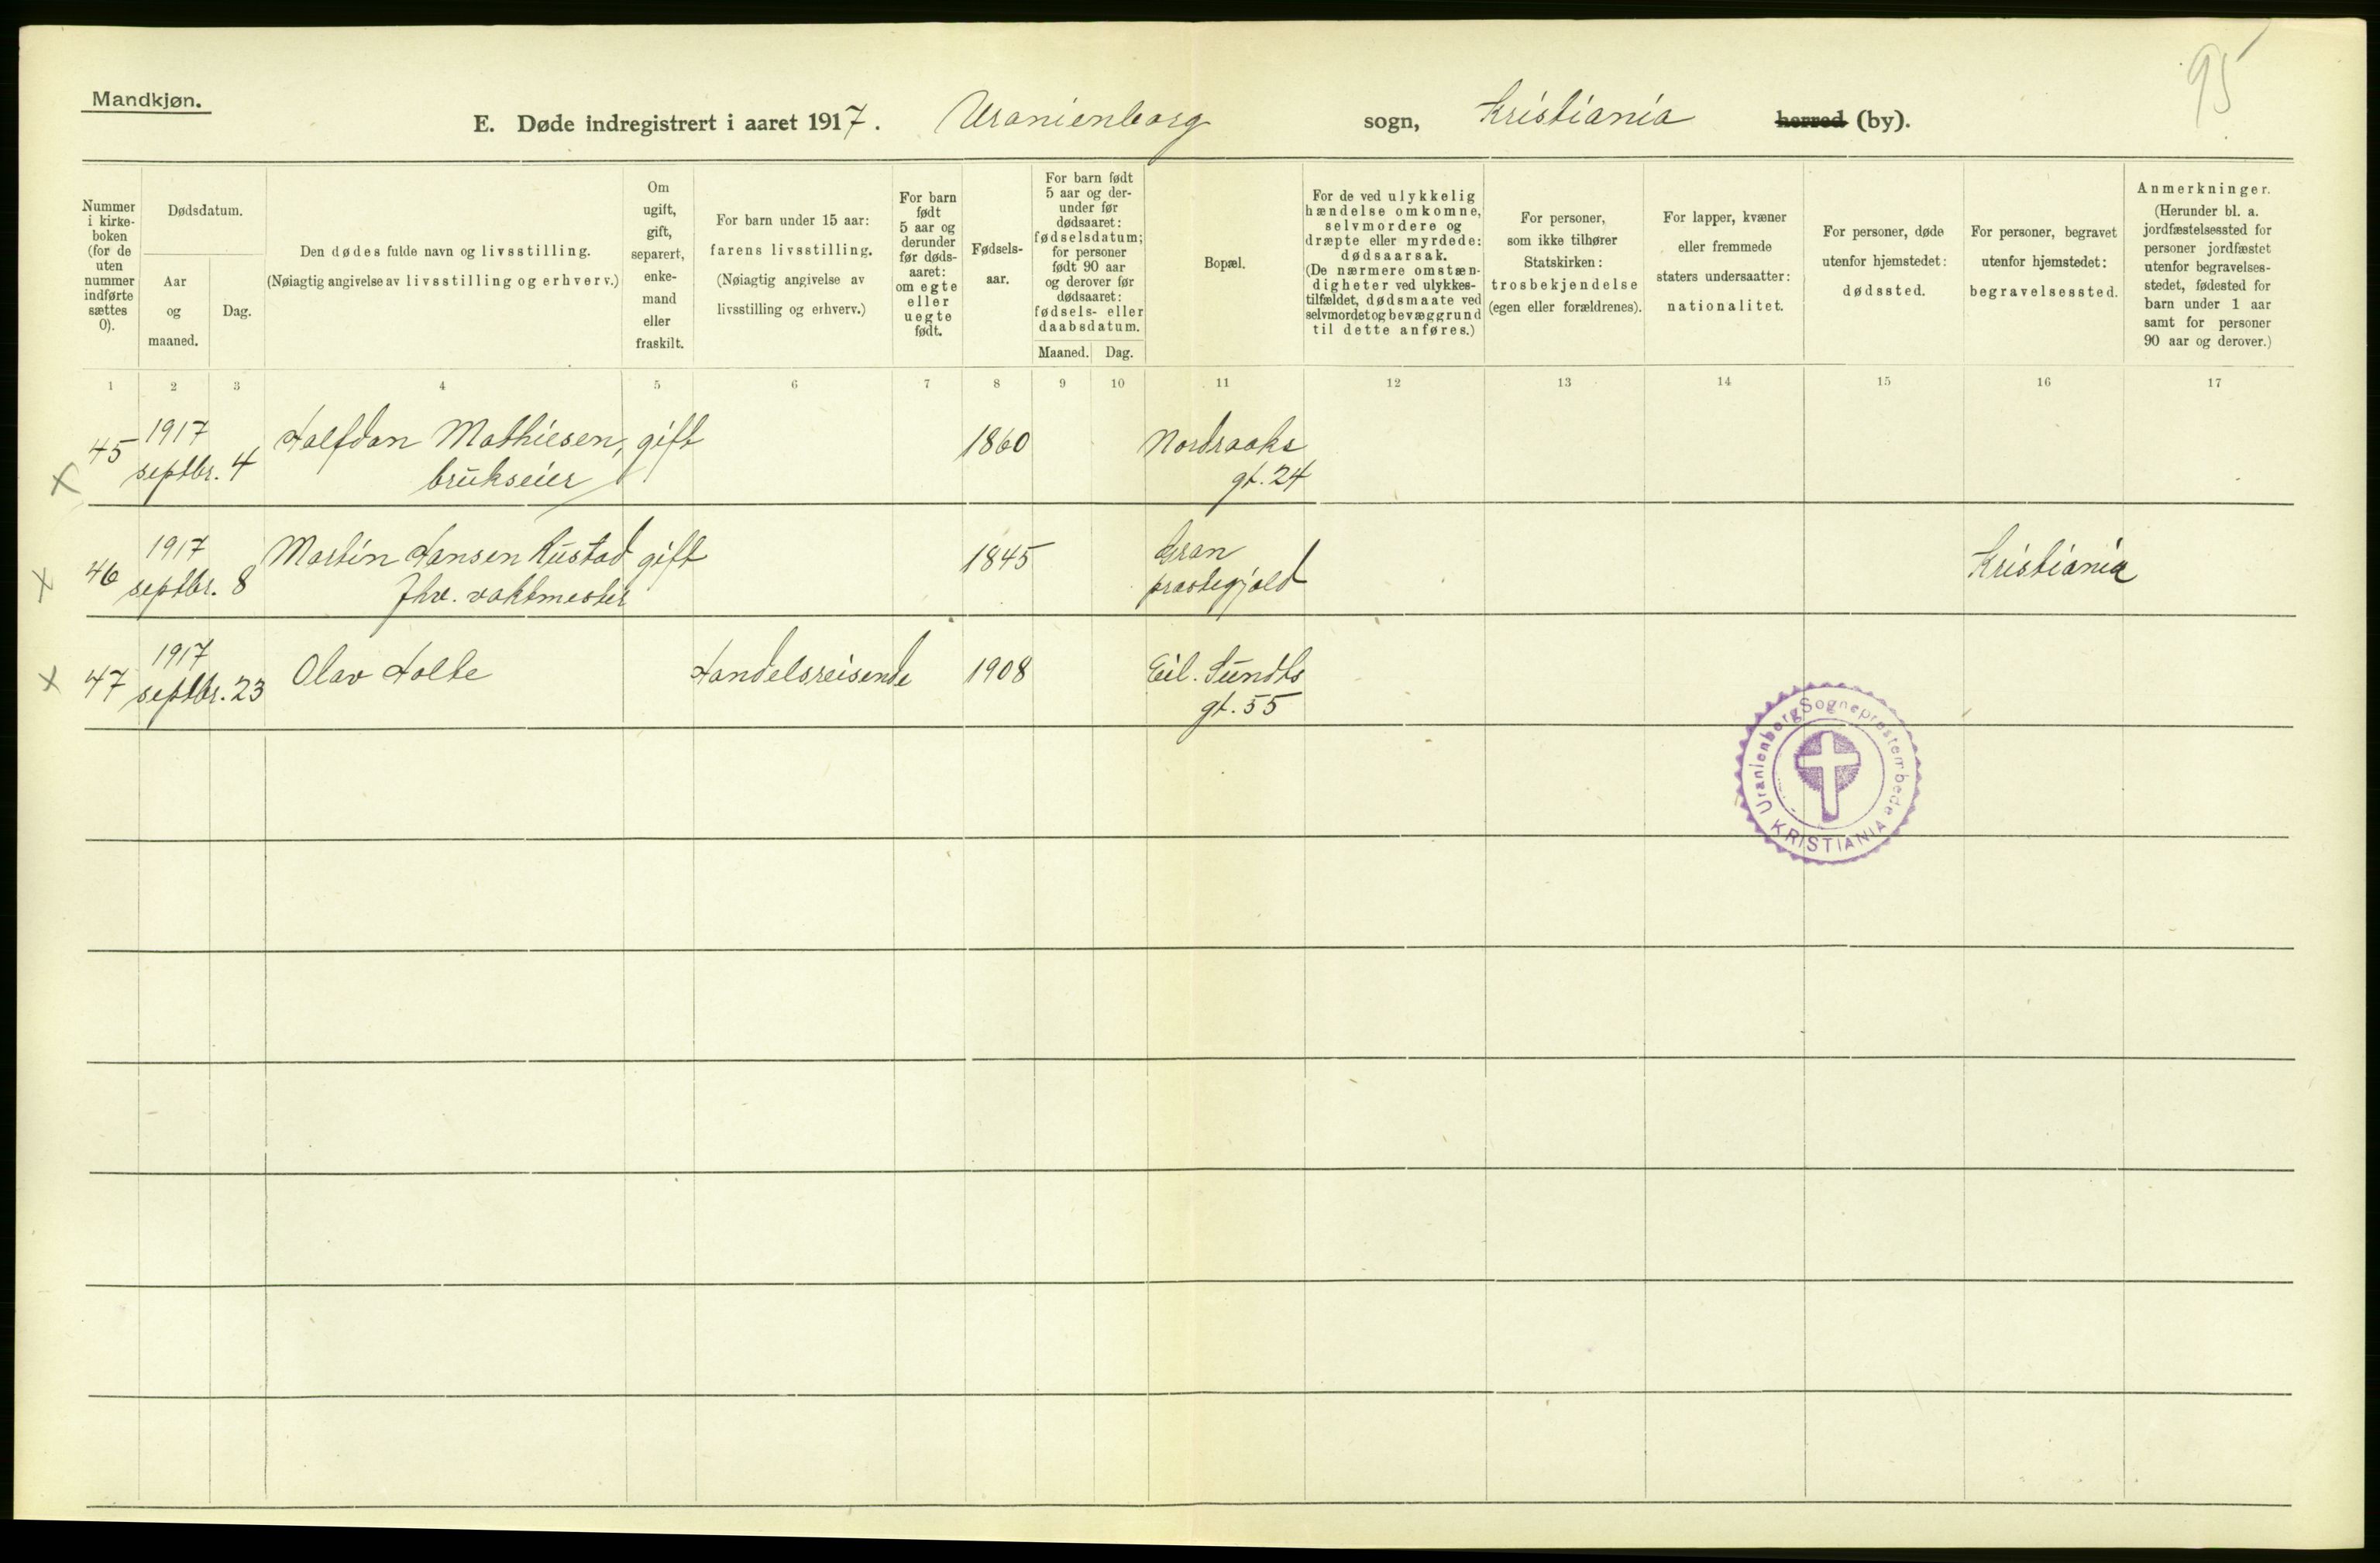 95
Mandkjøn.
E. Døde indregistrert i aaret 1917. Uranienborg sogn, Kristiania herred (by).
Nummer
i kirke-
boken
(for de
uten
nummer
indførte
sættes
0).
Dødsdatum.
Aar
og
maaned.
Dag.
Den dødes fulde navn og livsstilling.
(Nøiagtig angivelse av livsstilling og erhverv.)
Om
ugift,
gift,
separert,
enke-
mand
eller
fraskilt.
For barn under 15 aar:
farens livsstilling.
(Nøiagtig angivelse av
livsstilling og erhverv.)
For barn
født
5 aar og
derunder
før døds-
aaret:
om egte
eller
uegte
født.
Fødsels-
aar.
For barn født
5 aar og der-
under før
dødsaaret:
fødselsdatum;
for personer
født 90 aar
og derover før
dødsaaret:
fødsels- eller
daabsdatum.
Maaned. Dag.
Bopæl.
For de ved ulykkelig
hændelse omkomne,
selvmordere og
dræpte eller myrdede:
dødsaarsak.
(De nærmere omstæn-
digheter ved ulykkes-
tilfældet, dødsmaate ved
selvmordet og bevæggrund
til dette anføres.)
For personer,
som ikke tilhører
Statskirken:
trosbekjendelse
(egen eller forældrenes).
For lapper, kvæner
eller fremmede
staters undersaatter:
nationalitet.
For personer, døde
utenfor hjemstedet:
dødssted.
For personer, begravet
utenfor hjemstedet:
begravelsessted.
Anmerkninger.
(Herunder bl. a.
jordfæstelsessted for
personer jordfæstet
utenfor begravelses-
stedet, fødested for
barn under 1 aar
samt for personer
90 aar og derover.)
1 2 3 4 5 6 7 8 9 10 11 12 13 14 15 16 17
x 45 1917 septbr. 4 Halfdan Mathiesen, gift 1860 Nordraaks
brukseier gt. 24
x 46 1917 septbr. 8 Martin Hansen Rustad gift 1845 Gran Kristiania
fhv. vaktmester prestegjeld
x 47 1917 septbr. 23 Olav Holte Handelsreisende 1908 Eil. Sundts
gt. 55
Uranienborg Sogneprestembede
KRISTIANIA